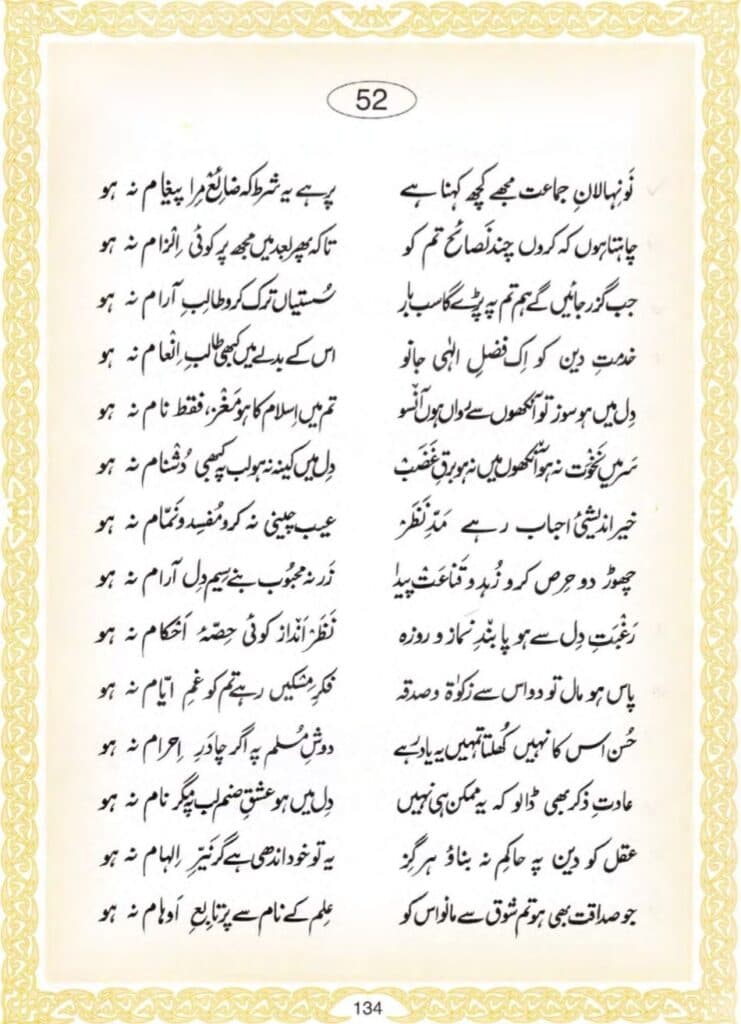 52
نَو نِہالانِ جماعت مجھے کچھ کہنا ہے پر ہے یہ شرط کہ ضائِع مِرا پیغام نہ ہو
چاہتا ہوں کہ کروں چند نَصائح تم کو تاکہ پھر بعد میں مجھ پر کوئی اِلْزام نہ ہو
جب گزر جائیں گے ہم تم پہ پڑے گا سب بار سُستیاں ترک کرو طالبِ آرام نہ ہو
خدمتِ دین کو اِک فضلِ الٰہی جانو اس کے بدلے میں کبھی طالبِ اِنْعام نہ ہو
دِل میں ہو سوز تو آنکھوں سے رواں ہوں آنْسو تم میں اِسلام کا ہو مَغْز، فقط نام نہ ہو
سَر میں نَخْوَت نہ ہو آنکھوں میں نہ ہو برقِ غَضَبْ دِل میں کینہ نہ ہو لب پہ کبھی دُشْنام نہ ہو
خیر اندیشیٔ احباب رہے مَدِّ نَظَرْ عیب چینی نہ کرو مُفسِد و نَمّام نہ ہو
چھوڑ دو حِرص کرو زُہد و قَناعَتْ پیدا زَر نہ محبُوب بنے سِیم دِل آرام نہ ہو
رَغْبَتِ دِل سے ہو پابندِ نماز و روزہ نَظَرْ اَنْداز کوئی حِصّۂ اَحْکام نہ ہو
پاس ہو مال تو دو اس سے زکوٰۃ و صدقہ فِکرِ مِسْکیں رہے تم کو غمِ ایّام نہ ہو
حُسن اس کا نہیں کُھلتا تمہیں یہ یاد رہے دوشِ مُسلم پہ اگر چادرِ اِحرام نہ ہو
عادتِ ذکر بھی ڈالو کہ یہ ممکن ہی نہیں دِل میں ہو عشقِ صنم لب پہ مگر نام نہ ہو
عقل کو دین پہ حاکم نہ بناؤ ہرگِز یہ تو خود اندھی ہے گر نَیّرِ اِلہام نہ ہو
جو صداقت بھی ہو تم شوق سے مانو اس کو عِلم کے نام سے پر تابِعِ اَوہام نہ ہو
134